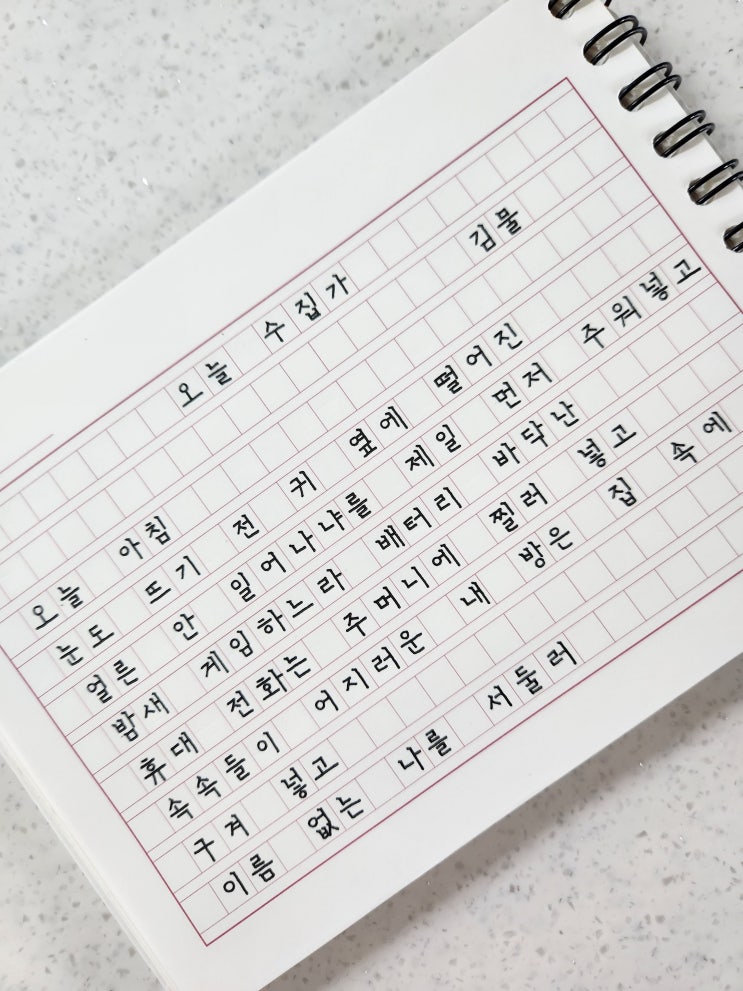 오늘 수집가
김물
오늘 아침
눈도 뜨기 전 귀 옆에 떨어진
얼른 안 일어나냐를 제일 먼저 주워넣고
밤새 게임하느라 배터리 바닥난
휴대 전화는 주머니에 찔러 넣고
속속들이 어지러운 내 방은 집 속에
구겨 넣고
이름 없는 나를 서둘러